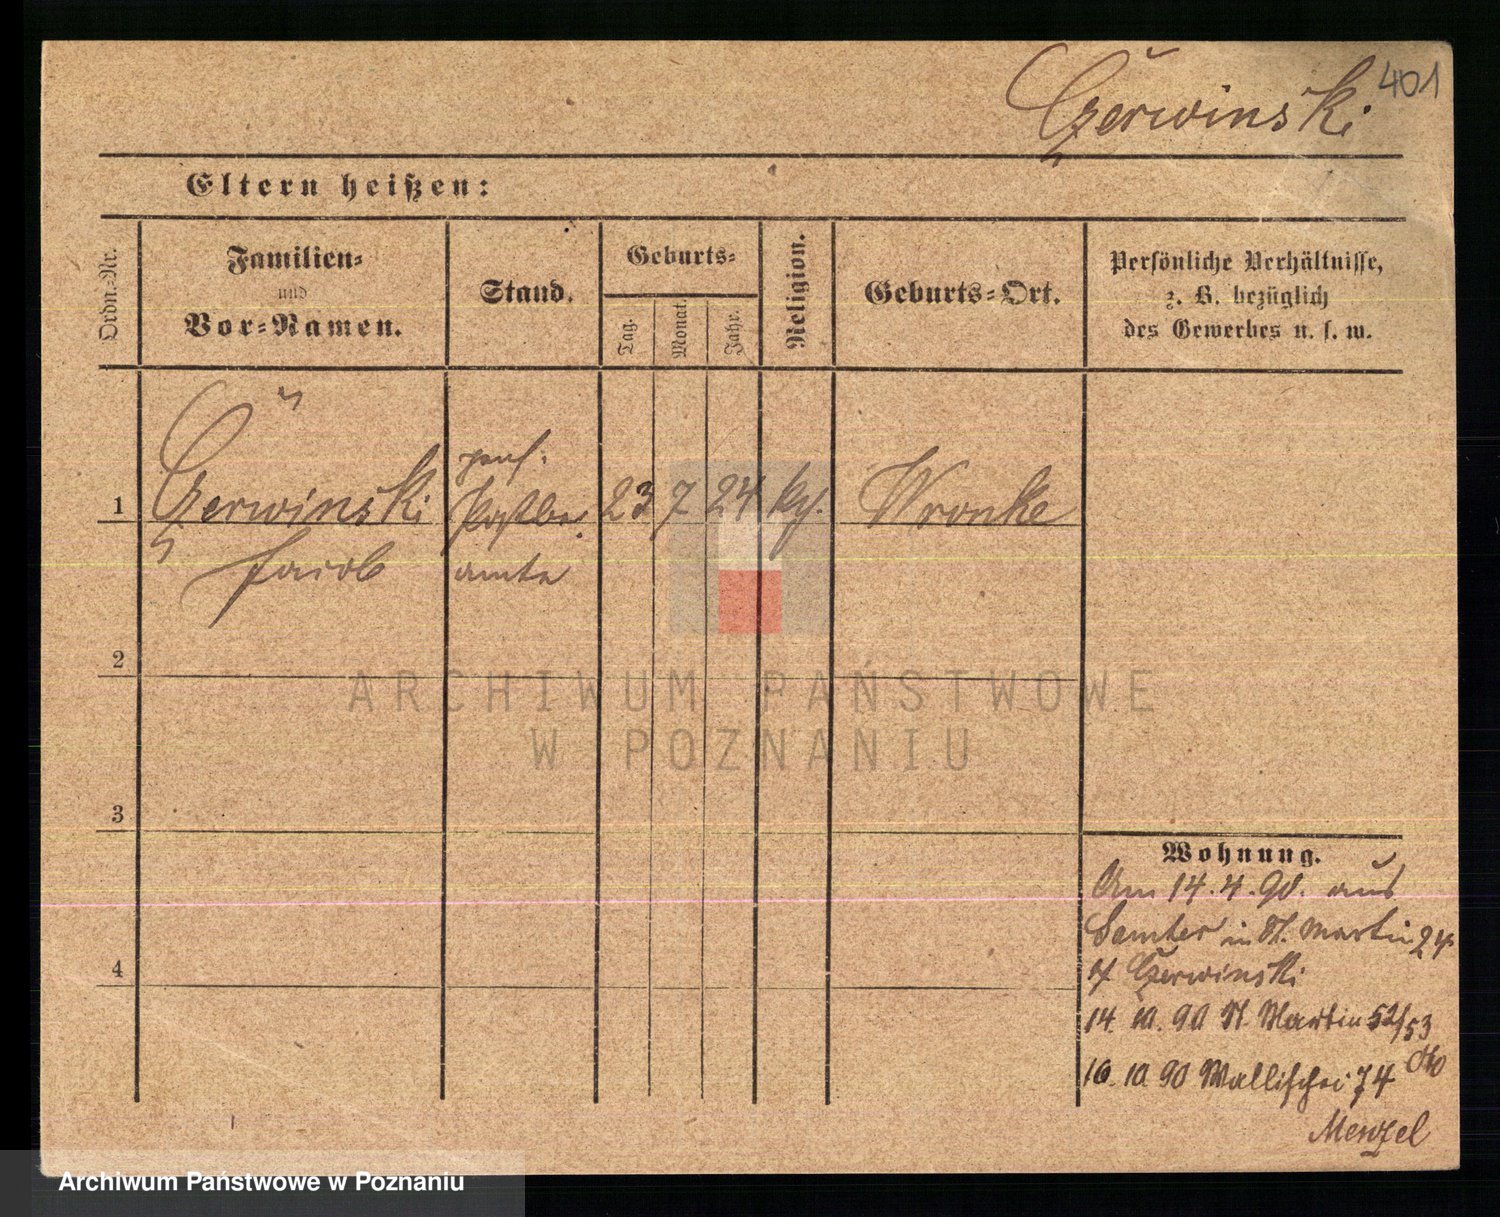 401
Czerwinski
Eltern heißen:
Ordn.-Nr.
Familien-
und
Vor-Namen.
Stand.
Geburts-
Tag.
Monat.
Jahr.
Religion.
Geburts-Ort.
Persönliche Verhältnisse,
z. B. bezüglich
des Gewerbes u. s. w.
1 Czerwinski pens. Postbe- 23 7 24 Wronke
Jacob amte
2
3
4
Wohnung.
Am 14.4.90. aus
Samter in St. Martin 24
Czerwinski
14. 10. 90 St Martin 52/53
16. 10. 90 Wallischei 74
Menzel
ARCHIWUM PAŃSTWOWE
W POZNANIU
Archiwum Państwowe w Poznaniu